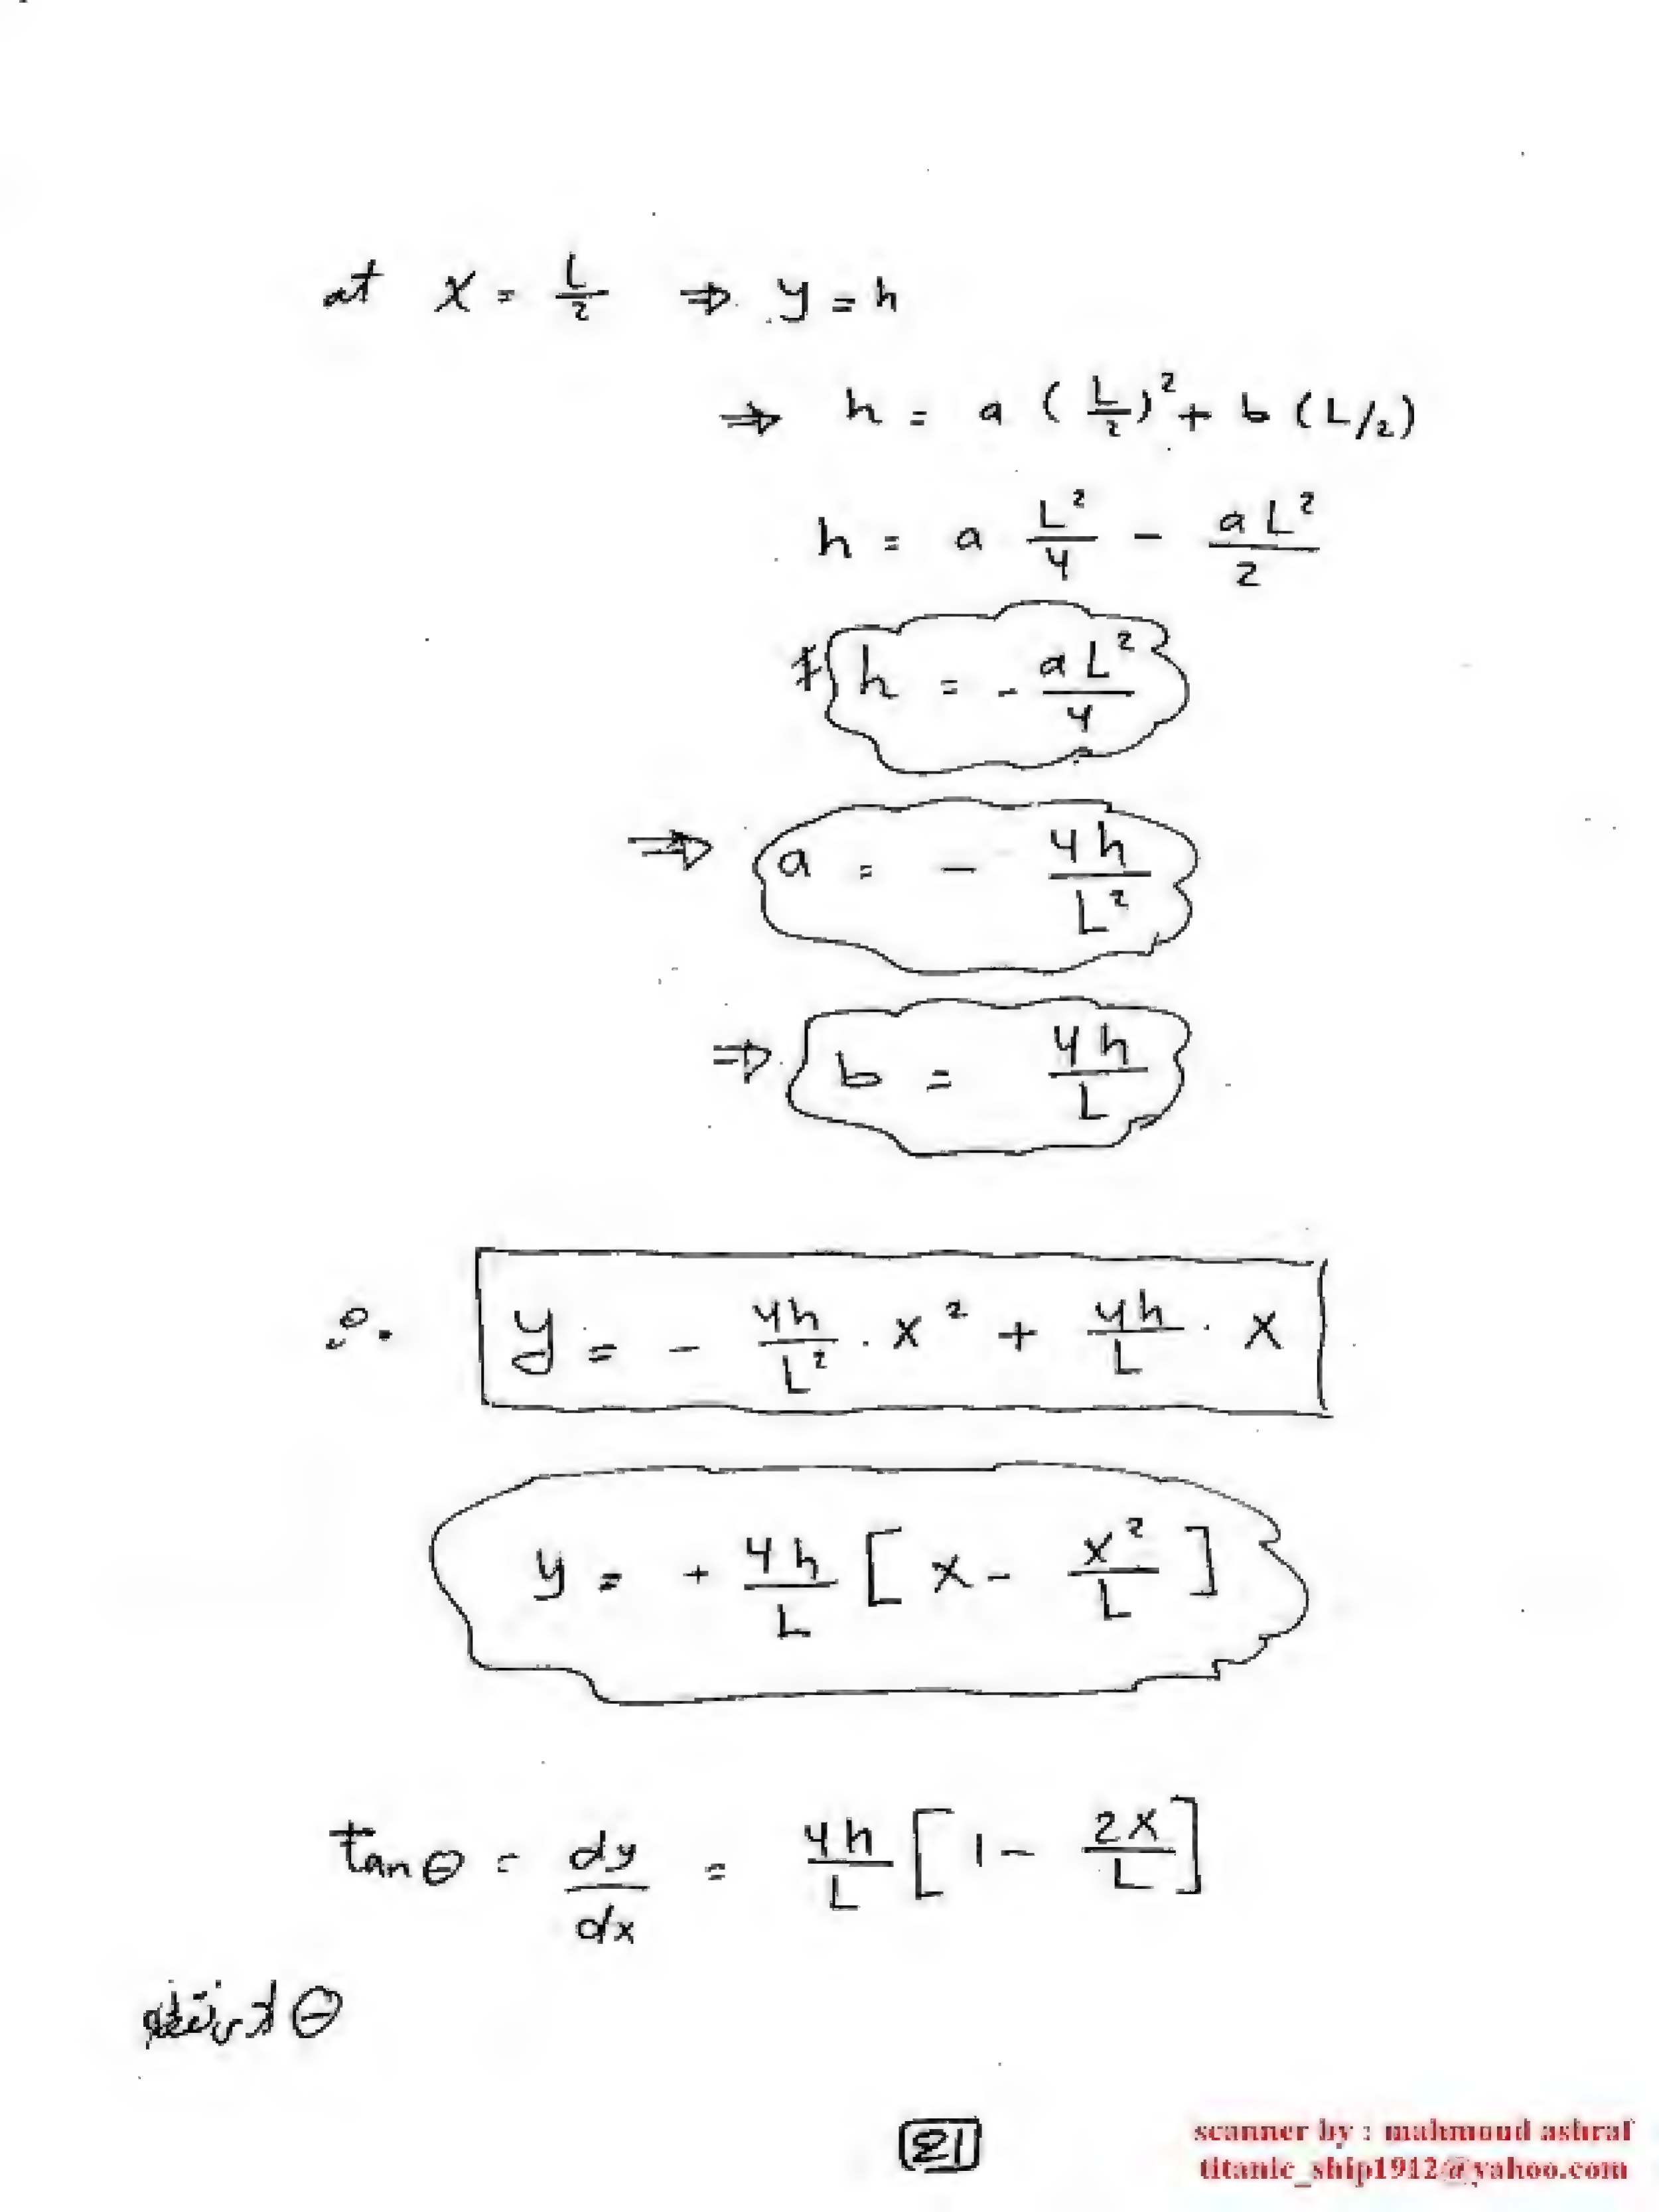 at x = L/2 ⇒ y = h
⇒ h = a (L/2)² + b (L/2)
h = a L²/4 - aL²/2
* h = - aL²/4
⇒ a = - 4h/L²
⇒ b = 4h/L
∴ y = - 4h/L² . x² + 4h/L . x
y = + 4h/L [ x - x²/L ]
tan θ = dy/dx = 4h/L [ 1 - 2x/L ]
θ
scanner by : mahmoud ashraf
titanic_ship1912@yahoo.com